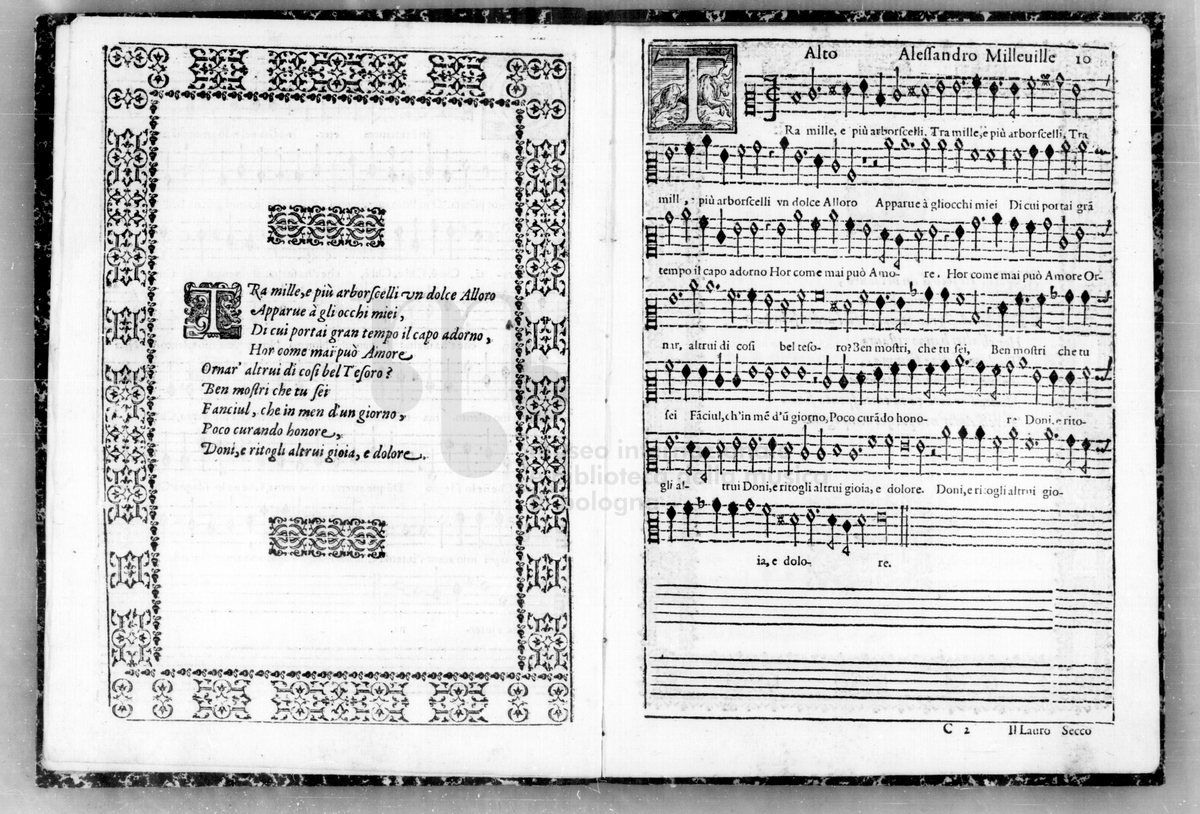 TRa mille, e più arborscelli vn dolce Alloro
Apparue à gli occhi miei,
Di cui portai gran tempo il capo adorno,
Hor come mai può Amore
Ornar' altrui di così bel Tesoro?
Ben mostri che tu sei
Fanciul, che in men d'un giorno,
Poco curando honore,
Doni, e ritogli altrui gioia, e dolore.
Alto Alessandro Milleuille 10
TRa mille, e più arborscelli, Tra mille, e più arborscelli, Tra
mill, e più arborscelli vn dolce Alloro Apparue à gliocchi miei Di cui portai grã
tempo il capo adorno Hor come mai può Amo- re. Hor come mai può Amore Or-
nar, altrui di così bel teso- ro? Ben mostri, che tu sei, Ben mostri che tu
sei Fãciul, ch'in mẽ d'ũ giorno, Poco curãdo hono- re Doni, e rito-
gli al- trui Doni, e ritogli altrui gioia, e dolore. Doni, e ritogli altrui gio-
ia, e dolo- re.
C 2 Il Lauro Secco
museo internazionale
biblioteca della musica
bologna